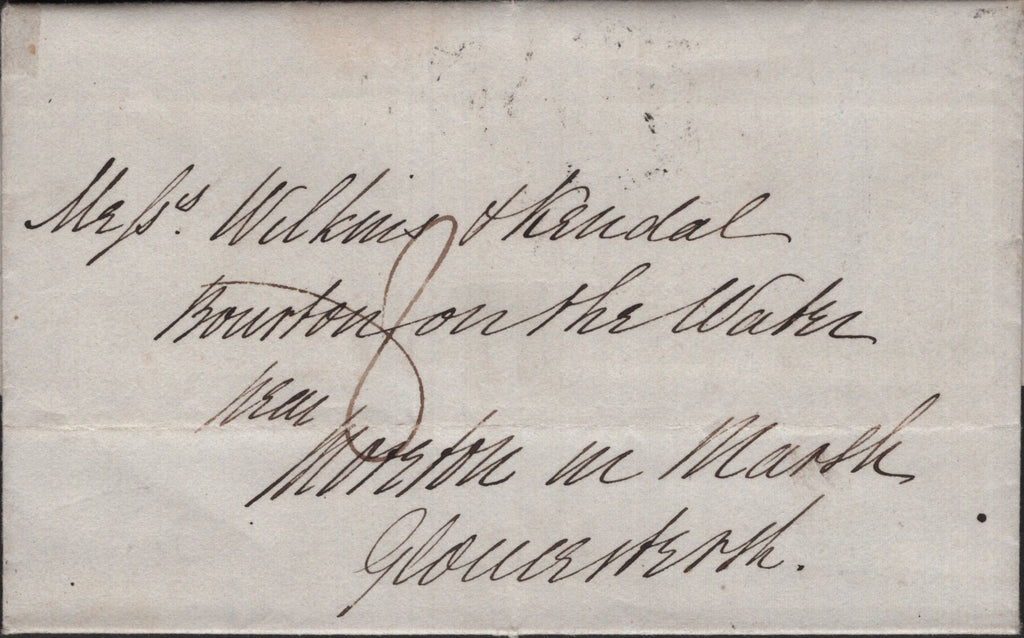 Messrs. Wilkins & Kendal
Bourton on the Water
8
near
Moreton in Marsh
Gloucestersh.